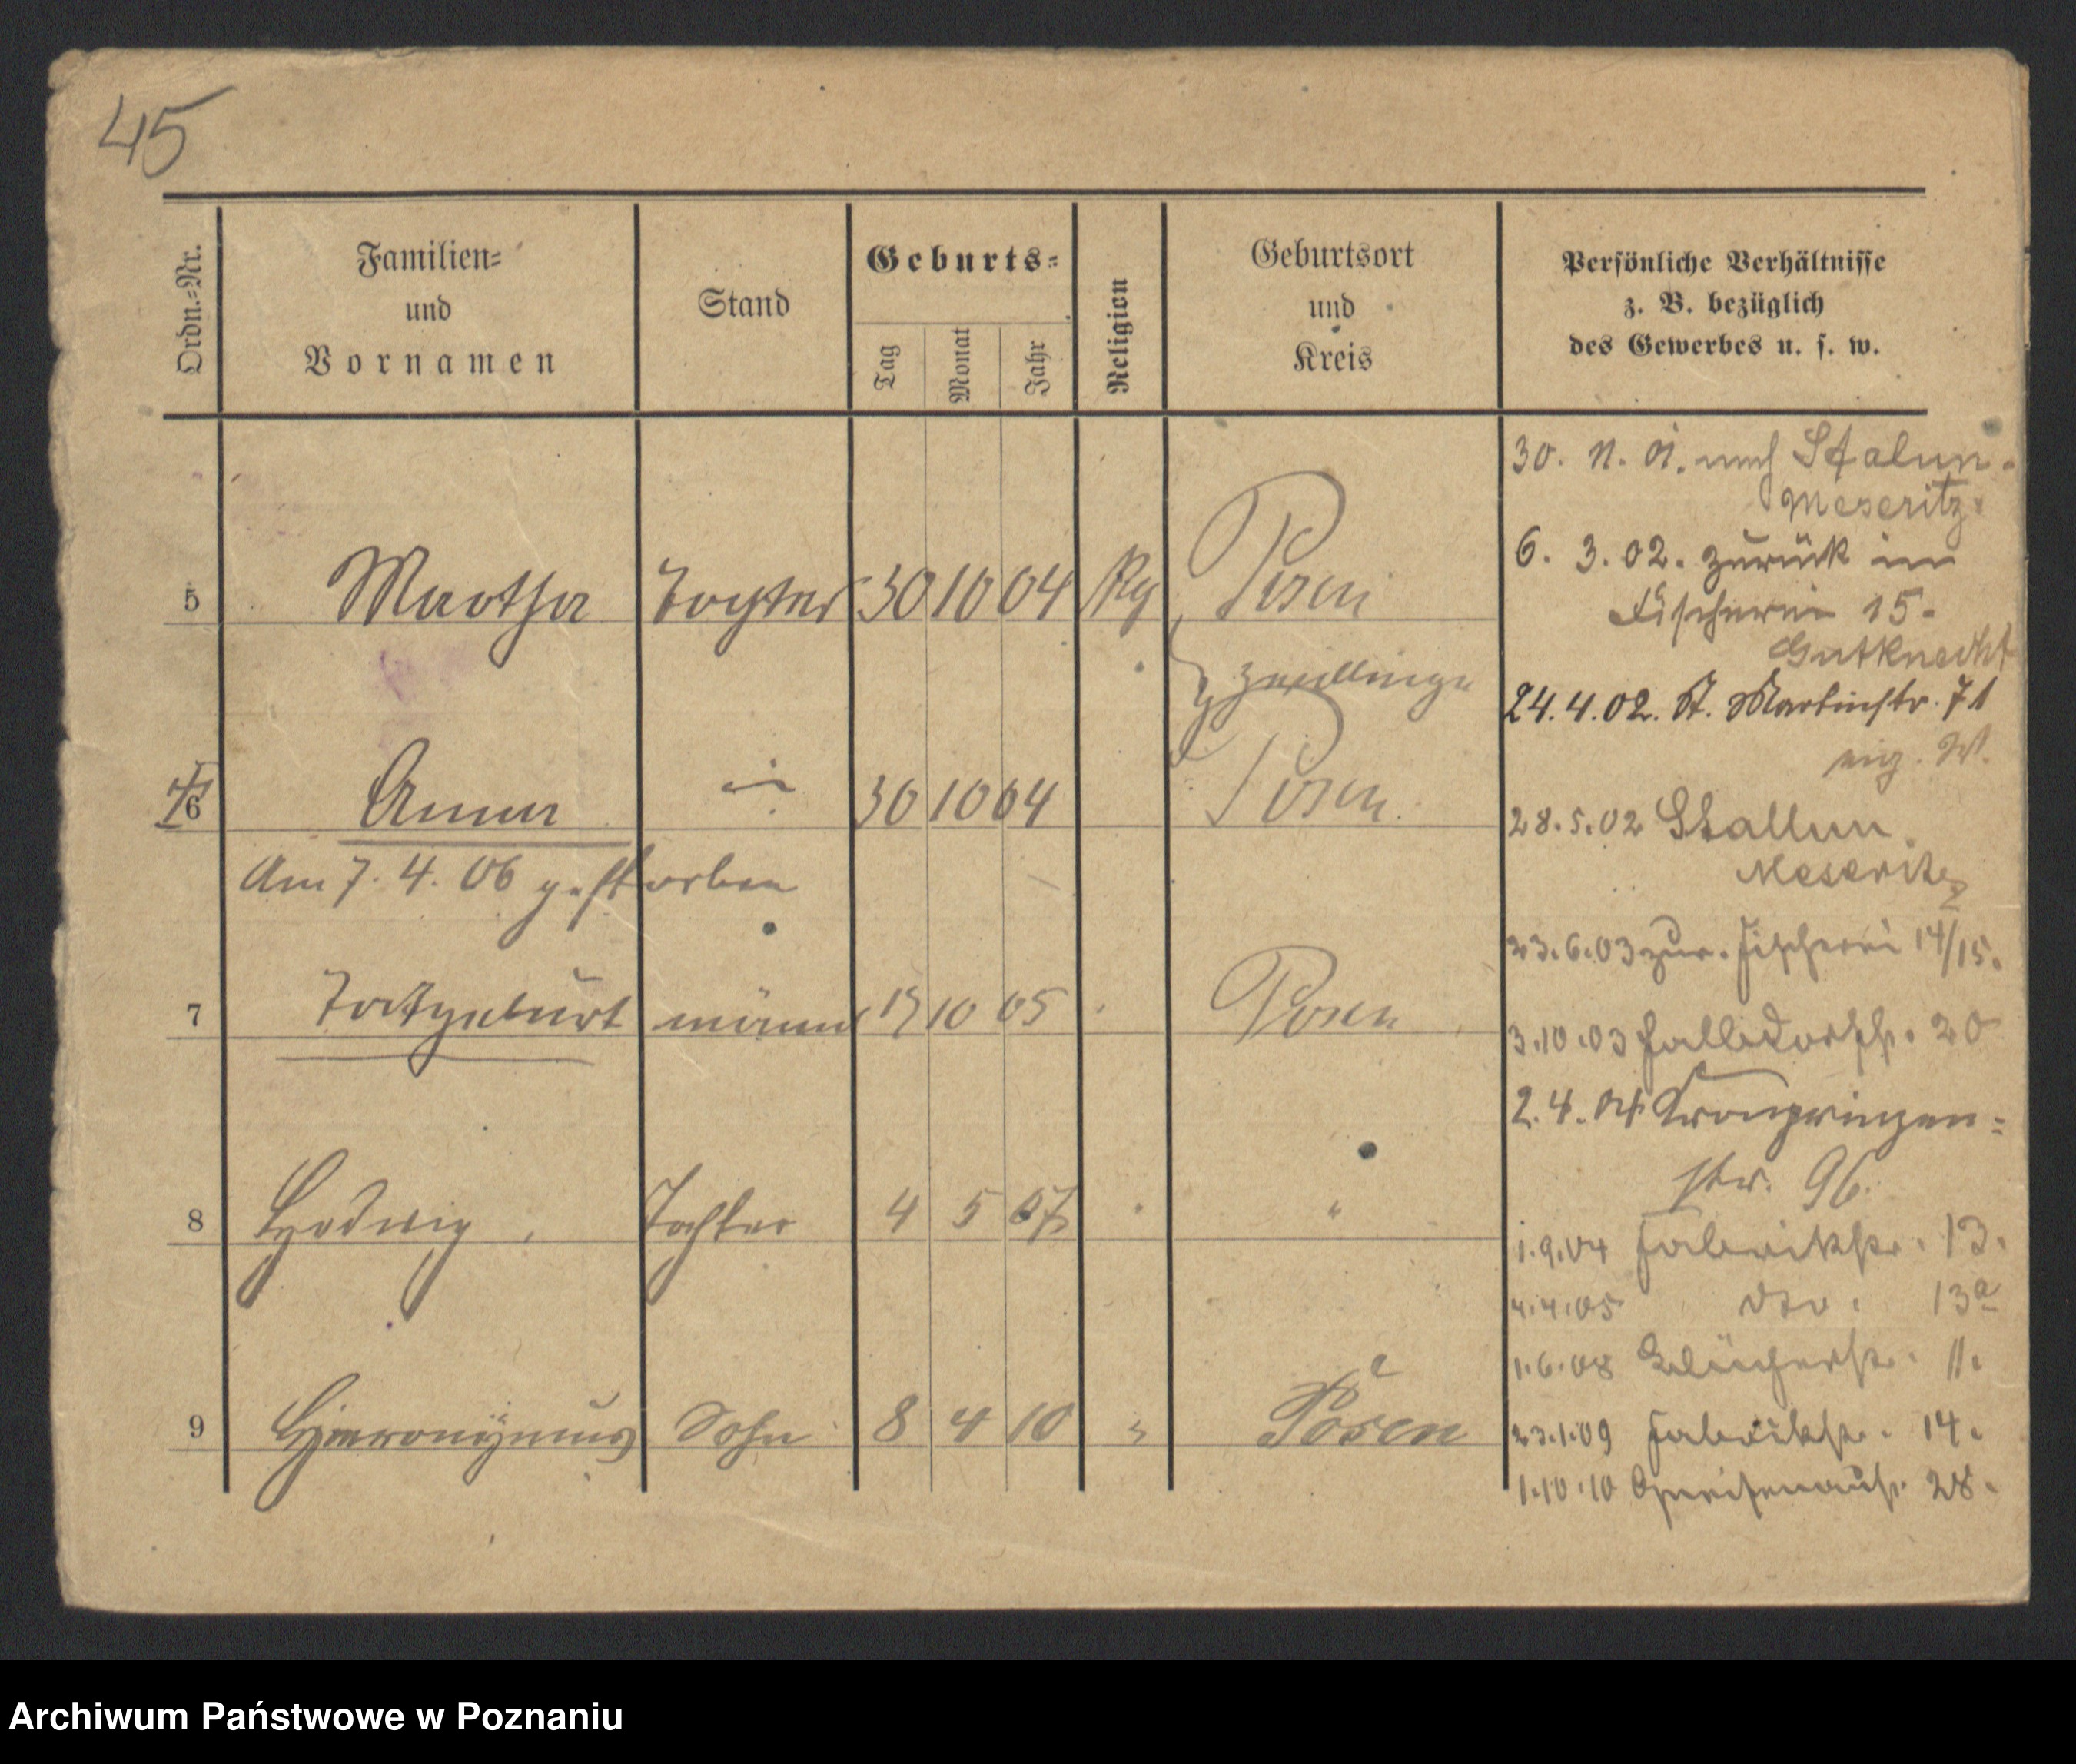 45
Ordn.-Nr.
Familien-
und
Vornamen
Stand
Geburts-
Tag
Monat
Jahr
Religion
Geburtsort
und
Kreis
Persönliche Verhältnisse
z. B. bezüglich
des Gewerbes u. s. w.
5 Martha Tochter 30 10 04 Posen
Zwillinge
6 Anna 30 10 04 Posen
Am 7. 4. 06 gestorben
7 Totgeburt männl 10 05 Posen
8 Hedwig, Tochter 4 5 07 "
9 Hieronÿmus Sohn 8 4 10 " Posen
30. 11. 01. nach Stalun-
Meseritz.
6. 3. 02. zurück in
Fischerei 15.
Gutknecht
24. 4. 02. St. Martinstr. 71
eig. W.
28. 5. 02 Stallun
Meseritz
23. 6. 03 zur. Fischerei 14/15.
3. 10. 03 Halldorfstr. 20
2. 4. 04 Kronprinzen-
str. 96.
1. 9. 04 Fabrikstr. 13.
4. 4. 05 dto. 13a
1. 6. 08 Blücherstr. 11.
23. 1. 09 Fabrikstr. 14.
1. 10. 10 Gneisenaustr. 28.
Archiwum Państwowe w Poznaniu